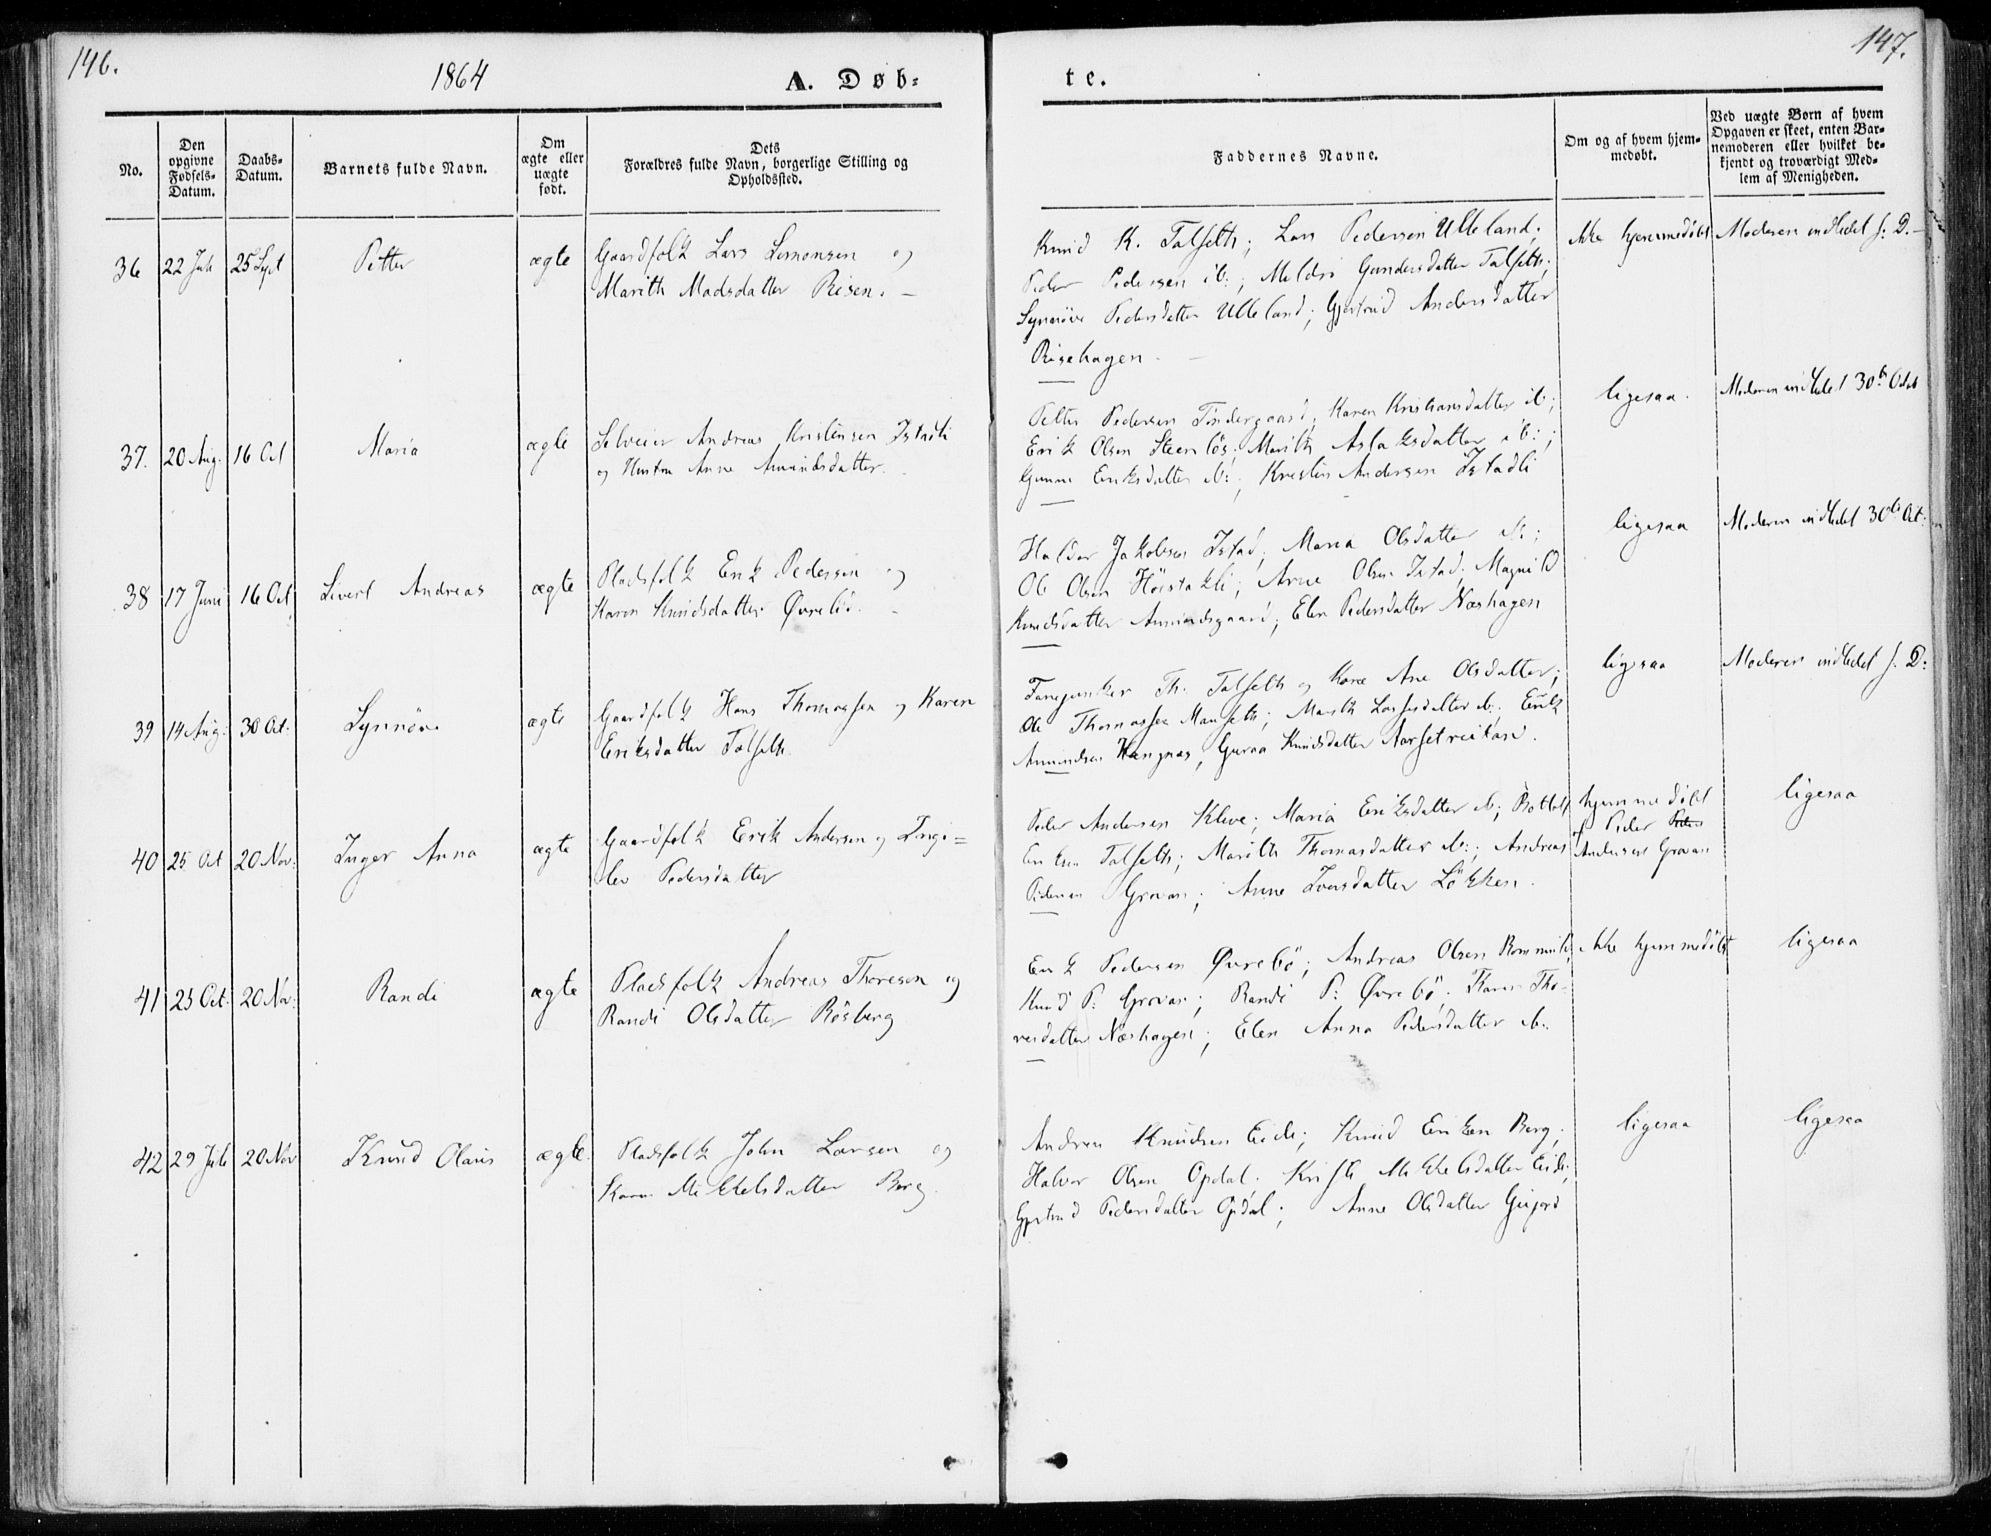 146.
1864
A. Døb-
te.
147.
No.
Den opgivne Fødsels-Datum.
Daabs-Datum.
Barnets fulde Navn.
Om ægte eller uægte født.
Dets Forældres fulde Navn, borgerlige Stilling og Opholdssted.
Faddernes Navne.
Om og af hvem hjem-medøbt.
Ved uægte Børn af hvem Opgaven er skeet, enten Bar-nemoderen eller hvilket be-kjendt og troværdigt Med-lem af Menigheden.
36 22 Juli 25 Sept Petter ægte Gaardfolk Lars Simonsen og
Marith Madsdatter Risen. –
Knud K. Talseth; Lars Pedersen Ulleland;
Peder Pedersen ib:; Meldri Gundersdatter Talseth;
Synnöve Pedersdatter Ulleland; Gjertrud Andersdatter
Risehagen. –
ikke hjemmedøbt
Moderen indledet s. D. –
37. 20 Aug. 16 Oct Maria ægte Selveier Andreas Kristensen Istadli
og Hustru Anne Amundsdatter.
Petter Pedersen Töndergaard; Karen Kristiansdatter ib;
Erik Olsen Steenlös; Marith Aslaksdatter ib:;
Gunne Eriksdatter ib:; Kristen Andersen Istadli
ligesaa.
Moderen indledet 30te Octob
38 17 Juni 16 Oct Sivert Andreas ægte Pladsfolk Erik Pedersen og
Karen Knudsdatter Øvrelid. –
Haldor Jakobsen Istad; Maria Olsdatter ib:;
Ole Olsen Höistakli; Arne Olsen Istad; Magnild
Knudsdatter Amundsgaard; Elen Pedersdatter Næshagen
ligesaa
Moderen indledet 30te Oct:
39 14 Aug: 30 Oct. Synnöve ægte Gaardfolk Hans Thomassen og Karen
Eriksdatter Talseth.
Fanejunker Th. Talseth og Kone Ane Olsdatter;
Ole Thomassen Manseth; Marith Lassesdatter ib:; Erik
Amundsen Hængnæs; Guroa Knudsdatter Aarsetreitan.
ligesaa
Moderen indledet s. D:
40 25 Oct 20 Nov: Inger Anna ægte Gaardfolk Erik Andersen og Ingi=
lev Pedersdatter
Peder Andersen Kleve; Maria Eriksdatter ib; Bottolf
Eriksen Talseth; Marith Thomasdatter ib:; Andreas
Pedersen Grovan; Anne Iversdatter Løkken.
hjemmedøbt
af Peder
Andersen Grovan
ligesaa
41 23 Oct. 20 Nov: Randi ægte Pladsfolk Andreas Thoresen og
Randi Olsdatter Rösberg
Erik Pedersen Øvrebö; Andreas Olsen
Knud P: Grovan; Randi P: Øvrebö; Karen Tho-
resdatter Næshagen; Elen Anna Pedersdatter ib:.
ikke hjemmedøbt
ligesaa
42 29 Juli 20 Nov Knud Olaus ægte. Pladsfolk John Larsen og
Karen Mikkelsdatter Berg.
Andreas Knudsen Eide; Knud Eriksen Berg;
Halvor Olsen Opdal. Kristi Mikkelsdatter Eide;
Gjertrud Pedersdatter Opdal; Anne Olsdatter Gujord
ligesaa
ligesaa